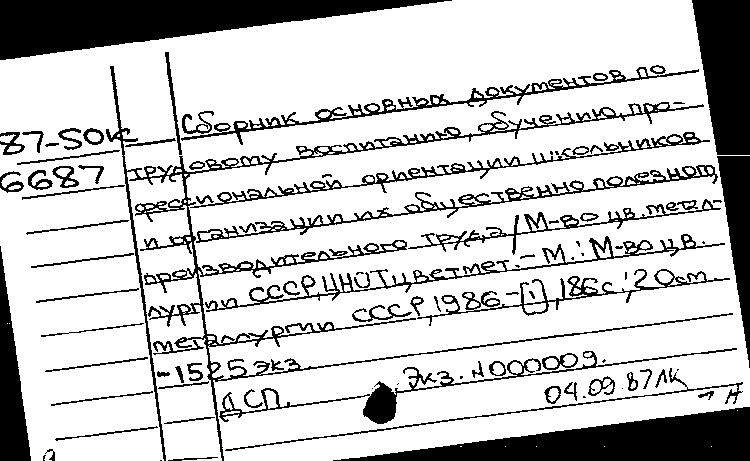 87-50к Сборник основных документов по
6687 трудовому воспитанию, обучению, про-
фессиональной ориентации школьников
и организации их общественно полезного,
производительного труда / М-во цв. метал-
лургии СССР, ЦНОТцветмет. - М.: М-во цв.
металлургии СССР, 1986. - [1], 186 с.; 20 см
-1525 экз.
ДСП. Экз. N000009.
04.09.87 ЛК
→ Н